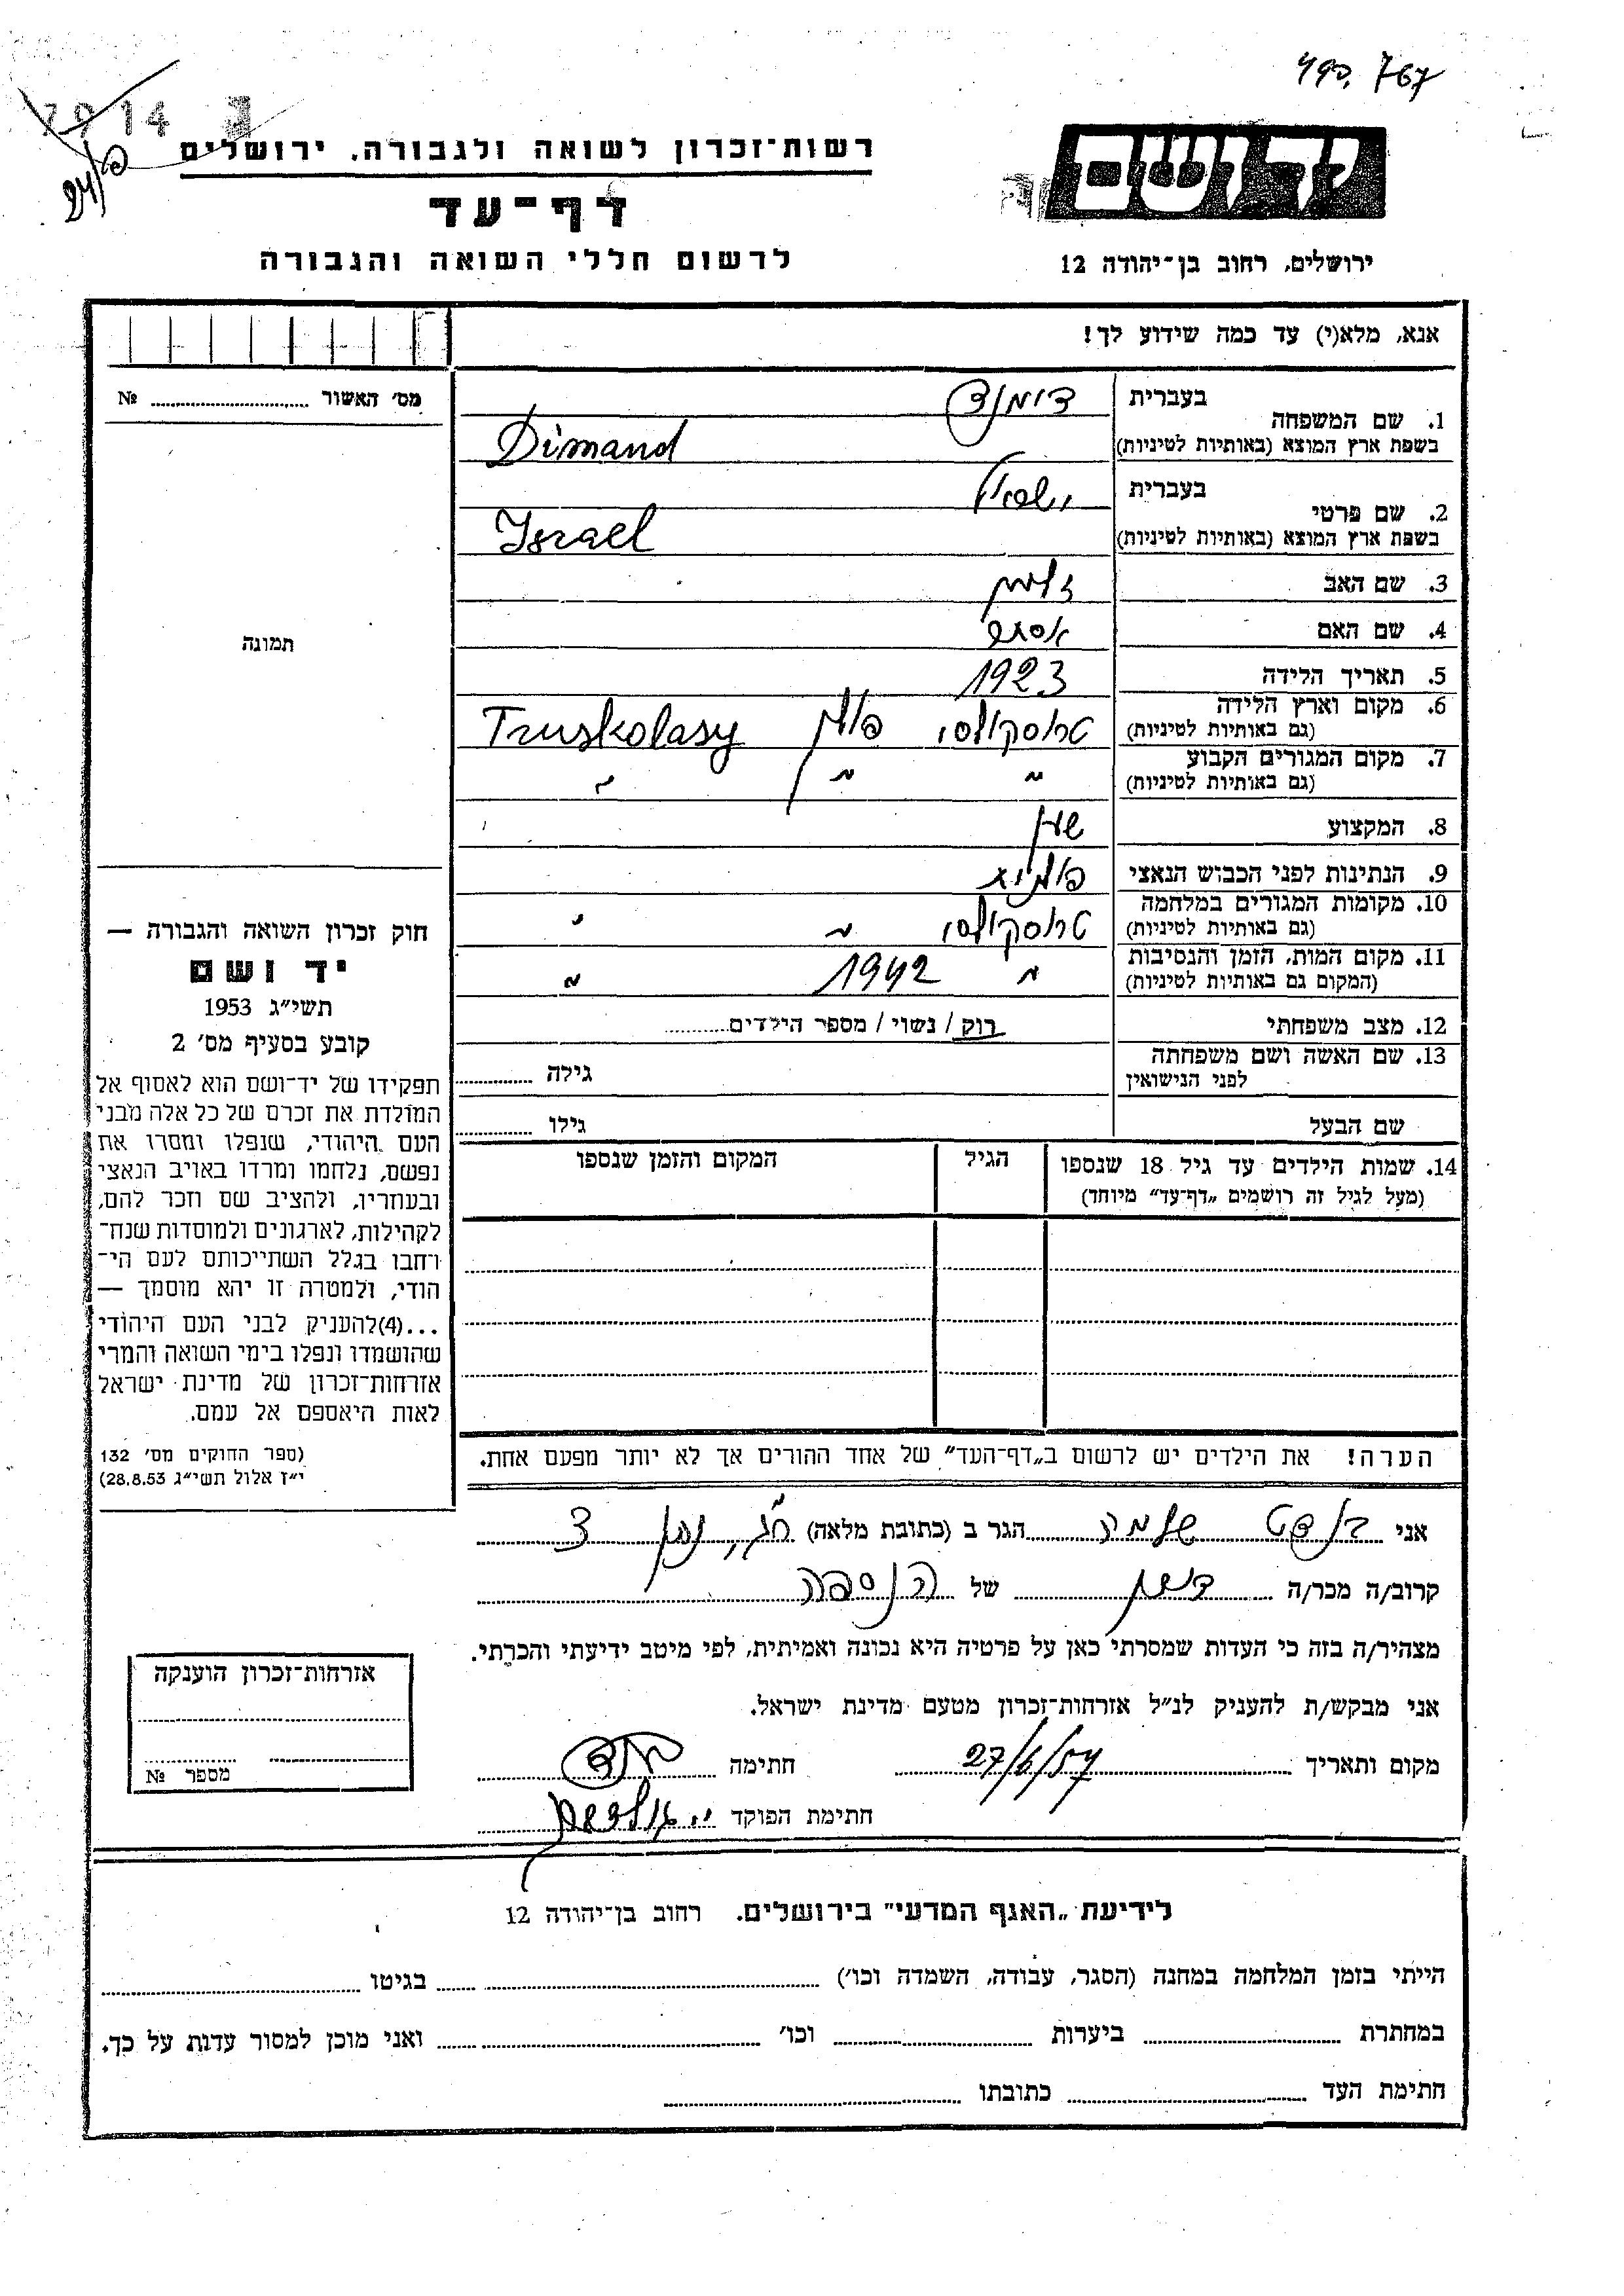 490.767
7914
רשות־זכרון לשואה ולגבורה. ירושלים
דף־עד
לרשום חללי השואה והגבורה
יד ושם
ירושלים, רחוב בן־יהודה 12
אנא, מלא(י) עד כמה שידוע לך!
מס׳ האשור № 
תמונה
1. שם המשפחה
בעברית דימנד
בשפת ארץ המוצא (באותיות לטיניות) Dimand
2. שם פרטי
בעברית ישראל
בשפת ארץ המוצא (באותיות לטיניות) Israel
3. שם האב זלמן
4. שם האם אסתר
5. תאריך הלידה 1923
6. מקום וארץ הלידה
(גם באותיות לטיניות) טרוסקולסי פולין Truskolasy
7. מקום המגורים הקבוע
(גם באותיות לטיניות) " " "
8. המקצוע
9. הנתינות לפני הכבוש הנאצי פולנית
10. מקומות המגורים במלחמה
(גם באותיות לטיניות) טרוסקולסי " "
11. מקום המות, הזמן והנסיבות
(המקום גם באותיות לטיניות) " 1942 "
12. מצב משפחתי רוק / נשוי / מספר הילדים
13. שם האשה ושם משפחתה
לפני הנישואין גילה
שם הבעל גילו
14. שמות הילדים עד גיל 18 שנספו הגיל המקום והזמן שנספו
(מעל לגיל זה רושמים „דף־עד״ מיוחד)
הערה! את הילדים יש לרשום ב„דף־העד״ של אחד ההורים אך לא יותר מפעם אחת.
חוק זכרון השואה והגבורה —
יד ושם
תשי״ג 1953
קובע בסעיף מס׳ 2
תפקידו של יד־ושם הוא לאסוף אל
המולדת את זכרם של כל אלה מבני
העם היהודי, שנפלו ומסרו את
נפשם, נלחמו ומרדו באויב הנאצי
ובעוזריו, ולהציב שם וזכר להם,
לקהילות, לארגונים ולמוסדות שנח־
רחבו בגלל השתייכותם לעם הי־
הודי, ולמטרה זו יהא מוסמך —
...(4)להעניק לבני העם היהודי
שהושמדו ונפלו בימי השואה והמרי
אזרחות־זכרון של מדינת ישראל
לאות היאספם אל עמם.
(ספר החוקים מס׳ 132
י״ז אלול תשי״ג 28.8.53)
אני שלמה הגר ב (כתובת מלאה)
קרוב/ה מכר/ה של הנספה
מצהיר/ה בזה כי העדות שמסרתי כאן על פרטיה היא נכונה ואמיתית, לפי מיטב ידיעתי והכרתי.
אני מבקש/ת להעניק לנ״ל אזרחות־זכרון מטעם מדינת ישראל.
מקום ותאריך 27/6/57 חתימה
חתימת הפוקד
אזרחות־זכרון הוענקה
מספר №
לידיעת „האגף המדעי״ בירושלים. רחוב בן־יהודה 12
הייתי בזמן המלחמה במחנה (הסגר, עבודה, השמדה וכו׳) בגיטו
במחתרת ביערות וכו׳ ואני מוכן למסור עדות על כך.
חתימת העד כתובתו